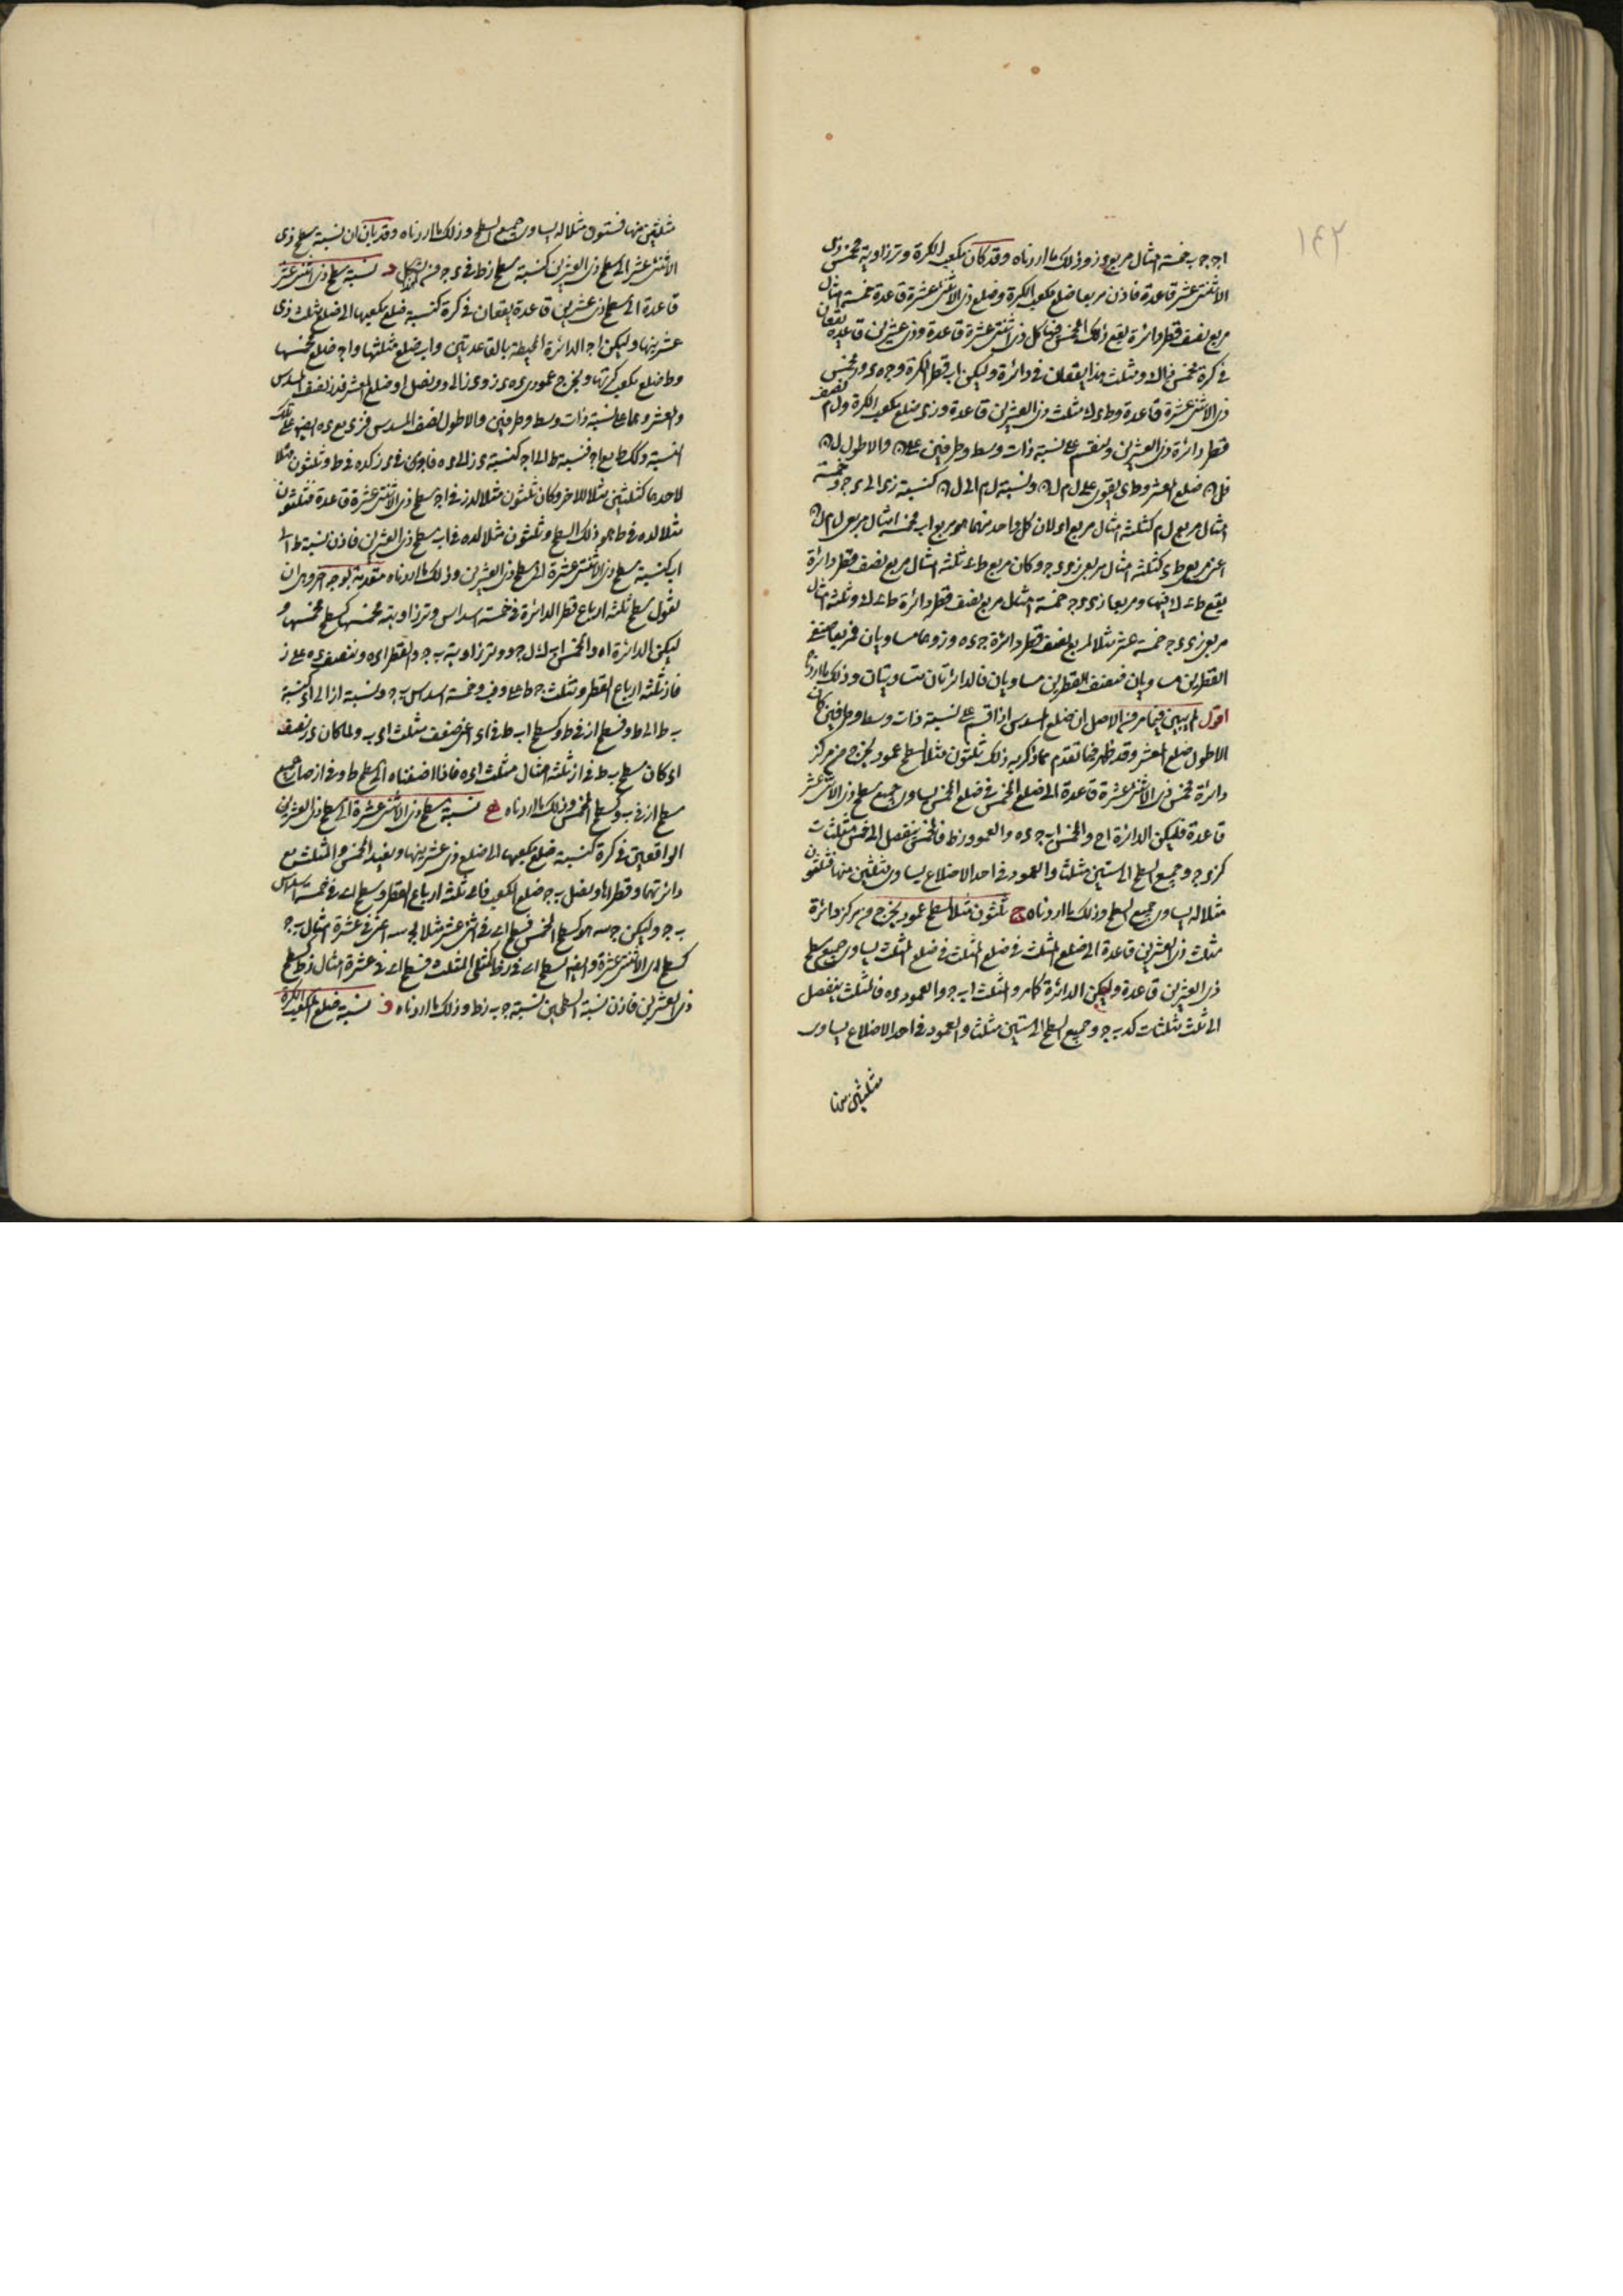 ١٤٢
اجـ جـ ب خمسة امثال مربع و ز وذلك ما اردناه وقد كان مكعب الكرة وتر زاوية مخمس ذى
الاثنتى عشر قاعدة فاذن مربعا ضلع مكعب الكرة وضلع ذى الاثنتى عشرة قاعدة خمسة امثال
مربع نصف قطر دائرة يقع ذلك المخمس فيها كل ذى اثنتى عشرة قاعدة وذى عشرين قاعدة يقعان
فى كرة فمخمس ذاك ومثلث هذا يقعان فى دائرة وليكن اب قطر الكرة و جـ ه ى و ر مخمس
ذى الاثنتى عشرة قاعدة و ط ى ك مثلث ذى العشرين قاعدة و ز ى ضلع مكعب الكرة و ل م نصف
قطر دائرة ذى العشرين ونقسم على نسبة ذات وسط وطرفين على ن والاطول ل ن
فل ن ضلع المعشر و ط ى يقوى على ل م ل ن ونسبة ل م الى ل ن كنسبة ز ى الى ى جـ وخمسة
امثال مربع ل م كثلثة امثال مربع ا ى لان كل واحد منهما هو مربع اب فخمسة امثال مربعى ل م ل ن
اعنى مربع ط ى كثلثة امثال مربعى ز ى ى جـ وكان مربع ط ى ثلثة امثال مربع نصف قطر دائرة
يقع ط ى ك فيها ومربعا ز ى ى جـ خمسة امثال مربع نصف قطر دائرة ط ى ك وثلثة امثال
مربعى ز ى ى جـ خمسة عشر مثلا لمربع نصف قطر دائرة جـ ى ه و ز وهما متساويان فمربعا نصفى
القطرين متساويان فنصف القطرين متساويان فالدائرتان متساويتان وذلك ما اردناه
اقول لم يبين فيما مر من الاصل ان ضلع المسدس اذا قسم على نسبة ذات وسط وطرفين كان
الاطول ضلع المعشر وقد ظهر فيما تقدم مما ذكر به ذلك ثلثون مثلا لسطح عمود يخرج من مركز
دائرة مخمس ذى الاثنتى عشرة قاعدة الى ضلع المخمس فى ضلع المخمس يساوى جميع سطح ذى الاثنتى عشر
قاعدة فليكن الدائرة اجـ والمخمس اب جـ ى ه والعمود ز ط فالمخمس ينفصل الى خمس مثلثات
كز ى جـ وجميع السطح الى ستين مثلثا والعمود فى احد الاضلاع يساوى مثلثين منها فثلثون
مثلا له يساوى جميع السطح وذلك ما اردناه ج ثلثون مثلا لسطح عمود يخرج من مركز دائرة
مثلث ذى العشرين قاعدة الى ضلع المثلث فى ضلع المثلث يساوى جميع سطح
ذى العشرين قاعدة وليكن الدائرة كما مر والمثلث اب جـ والعمود ى ه فالمثلث ينفصل
الى ثلث مثلثات كد ب جـ وجميع السطح الى ستين مثلثا والعمود فى احد الاضلاع يساوى
مثلثين منها
مثلثين منها فستون مثلا له يساوى جميع السطح وذلك ما اردناه وقد بان ان نسبة سطح ذى
الاثنتى عشر الى سطح ذى العشرين كنسبة سطح ز ط فى ى جـ من الشكل د نسبة سطح ذى اثنتى عشر
قاعدة الى سطح ذى عشرين قاعدة يقعان فى كرة كنسبة ضلع مكعبها الى ضلع مثلث ذى
عشرينها وليكن اجـ الدائرة المحيطة بالقاعدتين و اب ضلع مثلثها و اجـ ضلع مخمسها
و ط ضلع مكعب كرتها ونخرج عمودى ى ه ى ز و ى ز الى و ونصل او ضلع المعشر فد ز نصف المسدس
والمعشر وهما على نسبة ذات وسط وطرفين والاطول نصف المسدس
النسبة وكذلك ط مع اجـ فنسبة ط الى اجـ كنسبة ى ز الى ى ه
لاحدهما كثلثين مثلا للاخر وكان ثلثون مثلا لد ز فى اجـ سطح ذى الاثنتى عشرة قاعدة فثلثون
مثلا لد ه فى ط هو ذلك السطح وثلثون مثلا لد ه فى اب سطح ذى العشرين فاذن نسبة ط الى
اب كنسبة سطح ذى الاثنتى عشرة الى سطح ذى العشرين وذلك ما اردناه مقدمة لوجه اخر وهى ان
نقول سطح ثلثة ارباع قطر الدائرة فى خمسة اسداس وتر زاوية مخمسها كسطح مخمسها و
ليكن الدائرة اه والمخمس اب ك ل جـ ووتر زاويته ب جـ والقطر ا ى ه وننصف ى ه على ز
فاز ثلثة ارباع القطر وثلث جـ ط على و فب و خمسة اسداس ب جـ ونسبة از الى ا ى كنسبة
ب ط الى ط و فسطح از فى ط و كسطح اب ط فى ا ى اعنى ضعف مثلث ا ى ب ولما كان ى ز نصف
ا ى كان سطح ب ط فى از ثلثة امثال مثلث ا ى ه فاذا اضفناه الى سطح ط و فى از صار جميع
سطح از فى ب و كسطح المخمس وذلك ما اردناه ه نسبة سطح ذى الاثنتى عشرة الى سطح ذى العشرين
الواقعين فى كرة كنسبة ضلع مكعبها الى ضلع ذى عشرينها ونعيد المخمس والمثلث مع
دائرتهما وقطر اها ونصل ب جـ ضلع المكعب فاى ثلثة ارباع القطر وسطح اى فى خمسة اسداس
ب جـ وليكن جـ سه هو كسطح المخمس فسطح اى فى اثنى عشر مثلا لجـ سه اعنى فى عشرة امثال ب جـ
كسطح ذى الاثنتى عشرة وايضا سطح اى فى ز ط كمثلى المثلث فسطح اى فى عشرة امثال ز ط كسطح
ذى العشرين فاذن نسبة السطحين نسبة جـ ب ز ط وذلك ما اردناه و نسبة ضلع مكعب الكرة